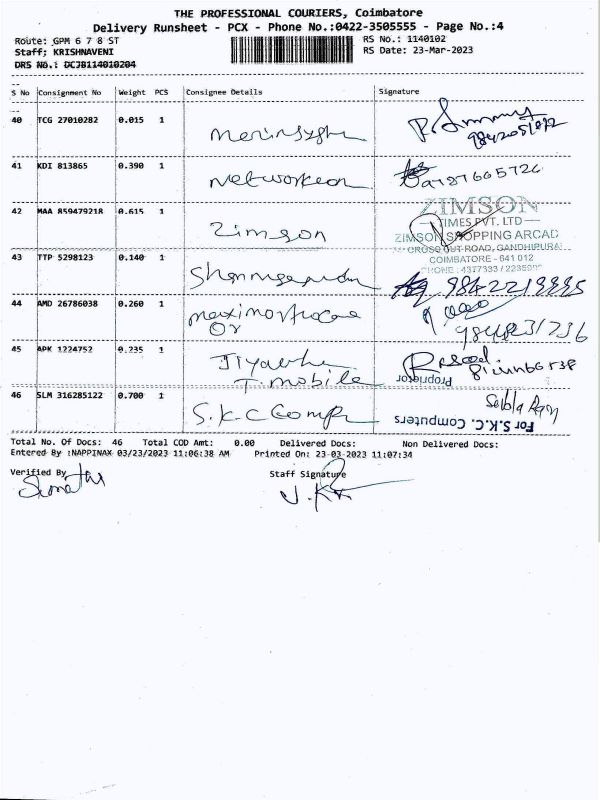 THE PROFESSIONAL COURIERS, Coimbatore
Delivery Runsheet - PCX - Phone No.:0422-3505555 - Page No.:4
Route: GPM 6 7 8 ST RS No.: 1140102
Staff; KRISHNAVENI RS Date: 23-Mar-2023
DRS No.: DCJB114010204
S No Consignment No Weight PCS Consignee Details Signature
40 TCG 27010282 0.015 1
9842051072
41 KDI 813865 0.390 1 Networkeon
42 MAA 859479218 0.615 1 Zimson
ZIMSON
TIMES PVT. LTD
ZIMSON SHOPPING ARCAD
CROSS CUT ROAD, GANDHIPURA
COIMBATORE - 641 012
PHONE : 4377333 /
43 TTP 5298123 0.140 1
44 AMD 26786038 0.260 1
45 APK 1224752 0.235 1
T. mobile
Proprietor
46 SLM 316285122 0.700 1 S.K.C Comp
For S.K.C. Computers
Total No. Of Docs: 46 Total COD Amt: 0.00 Delivered Docs: Non Delivered Docs:
Entered By :NAPPINAX 03/23/2023 11:06:38 AM Printed On: 23-03-2023 11:07:34
Verified By Staff Signature